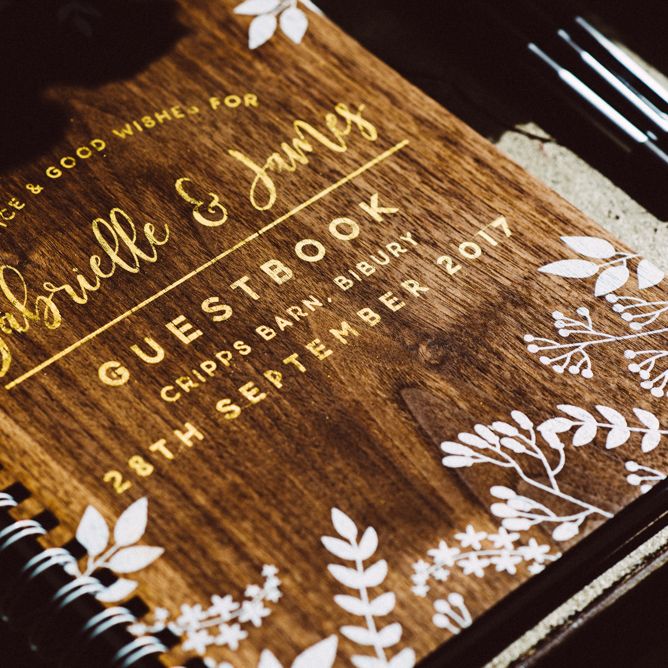 & GOOD WISHES FOR
Gabrielle & James
GUESTBOOK
CRIPPS BARN, BIBURY
28TH SEPTEMBER 2017